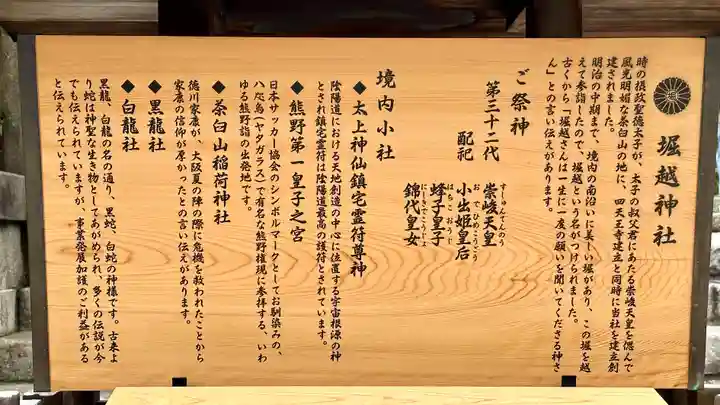 堀越神社
時の摂政聖徳太子が、太子の叔父君にあたる崇峻天皇を偲んで
風光明媚な茶臼山の地に、四天王寺建立と同時に当社を建立創
建されました。
明治の中期まで、境内の南沿いに美しい堀があり、この堀を越
えて参詣したので、堀越という名がつけられました。
古くから「堀越さんは一生に一度の願いを聞いてくださる神さ
ん」との言い伝えがあります。
ご祭神
第三十二代 崇峻天皇
すしゅんてんのう
配祀 小出姫皇后
こいでひめこうごう
蜂子皇子
はちこおうじ
錦代皇女
にしきでこうじょ
境内小社
◆太上神仙鎮宅霊符尊神
陰陽道における天地創造の中心に位置する宇宙根源の神
とされ鎮宅霊符は陰陽道最高の護符とされています。
◆熊野第一皇子之宮
日本サッカー協会のシンボルマークとしてお馴染みの、
八咫烏(ヤタガラス)で有名な熊野権現に参拝する、いわ
ゆる熊野詣の出発地です。
◆茶臼山稲荷神社
徳川家康が、大阪夏の陣の際に危機を救われたことから
家康の信仰が厚かったとの言い伝えがあります。
◆黒龍社
◆白龍社
黒龍、白龍の名の通り、黒蛇、白蛇の神様です。古来よ
り蛇は神聖な生き物としてあがめられ、多くの伝説が今
でも伝えられていますが、事業発展加護のご利益がある
と伝えられています。